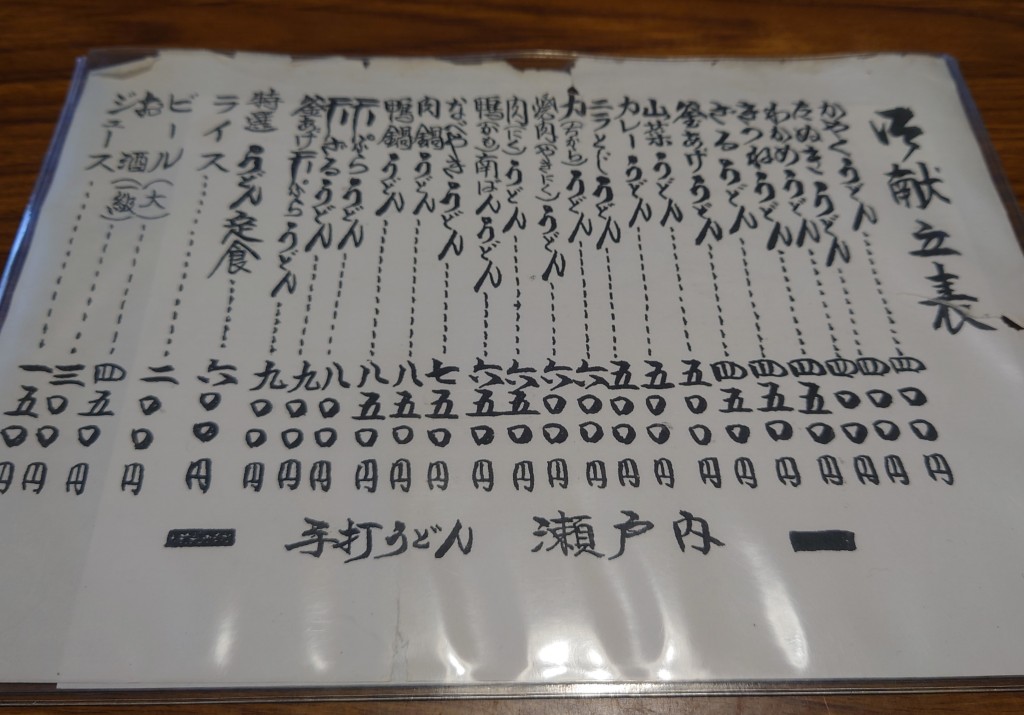 御献立表
かやくうどん 四〇〇円
たぬきうどん 四〇〇円
わかめうどん 四〇〇円
きつねうどん 四五〇円
ざるうどん 四五〇円
釜あげうどん 四五〇円
山菜うどん 五〇〇円
カレーうどん 五〇〇円
ニラとじうどん 五〇〇円
力(ちから)うどん 六〇〇円
焼肉(やきにく)うどん 六〇〇円
肉(にく)うどん 六五〇円
鴨(かも)南ばんうどん 六五〇円
なべやきうどん 七五〇円
肉鍋うどん 八五〇円
鴨鍋うどん 八五〇円
天ぷらうどん 八〇〇円
天ざるうどん 九〇〇円
釜あげ天ぷらうどん 九〇〇円
特選うどん定食 六〇〇円
ライス 二〇〇円
ビール(大) 四五〇円
お酒(一級) 三〇〇円
ジュース 一五〇円
手打うどん 瀬戸内